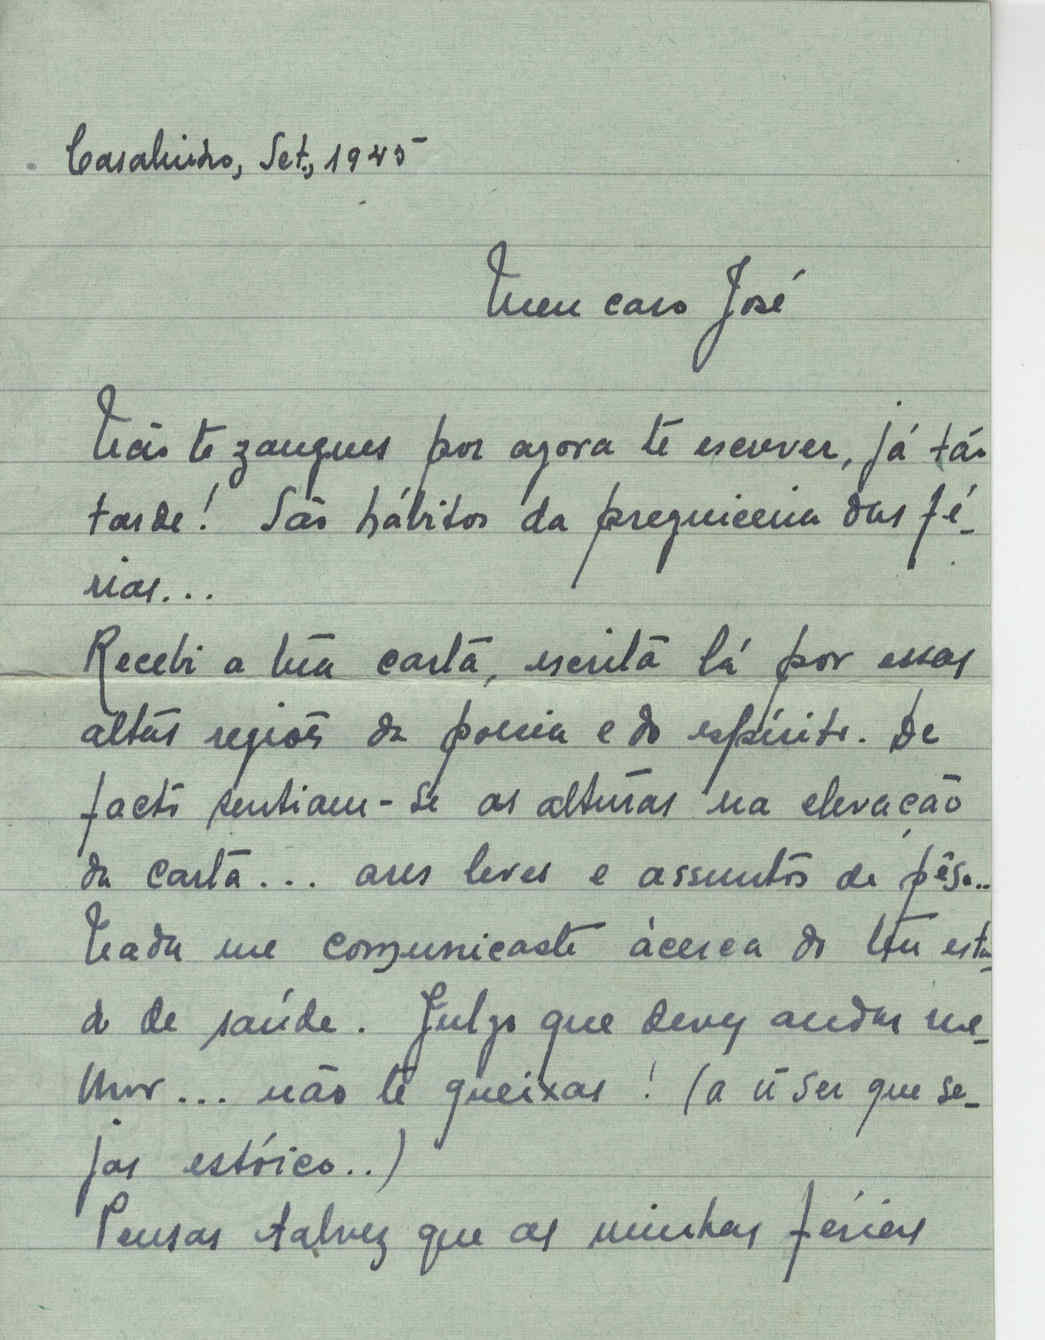 Casalinho, Set., 1945
Meu caro José
Não te zangues por agora te escrever, já tão
tarde! São hábitos da preguiceira das fé-
rias...
Recebi a tua carta, escrita lá por essas
altas regiões da poesia e do espírito. De
facto sentiam-se as alturas na elevação
da carta... ares leves e assuntos de pêso..
Nada me comunicaste àcerca do teu esta-
do de saúde. Julgo que deves andar me-
lhor... não te queixas! (a ñ ser que se-
jas estóico..)
Pensas talvez que as minhas férias